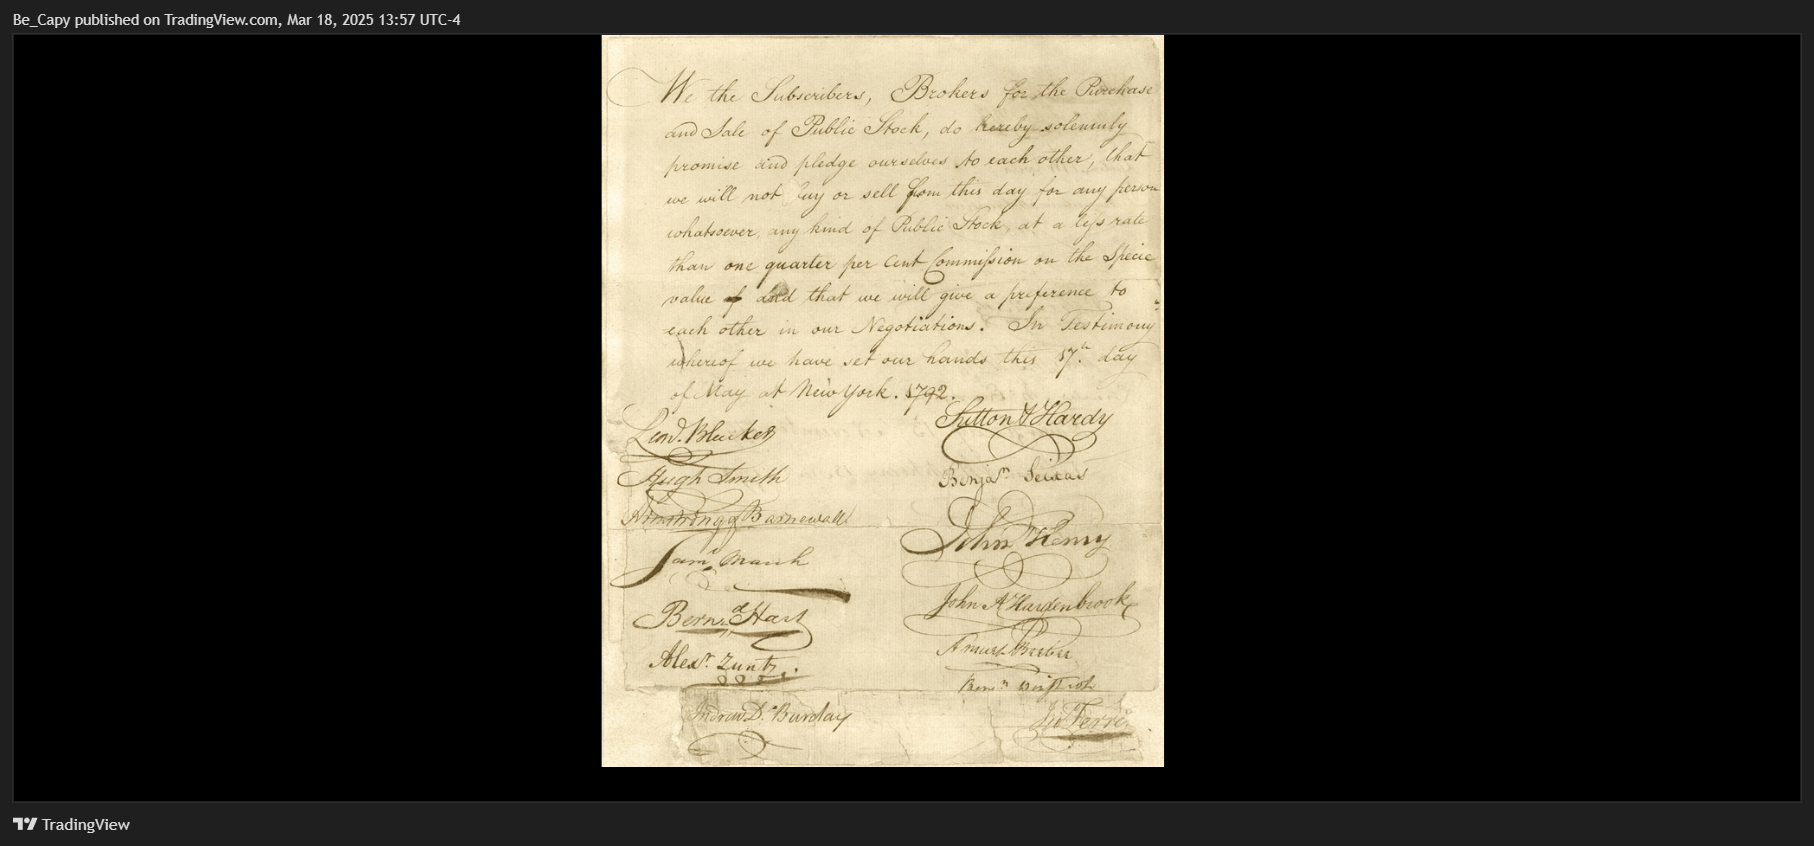 Be_Capy published on TradingView.com, Mar 18, 2025 13:57 UTC-4
We the Subscribers, Brokers for the Purchase
and Sale of Public Stock, do hereby solemnly
promise and pledge ourselves to each other, that
we will not buy or sell from this day for any person
whatsoever, any kind of Public Stock, at a less rate
than one quarter per cent Commission on the Specie
value of and that we will give a preference to
each other in our Negotiations. In Testimony
whereof we have set our hands this 17th day
of May at New York. 1792.
Leod. Bleecker
Hugh Smith
Armstrong & Barnewall
Saml March
Bernd. Hart
Alexr. Zuntz.
Andrew D. Barclay
Sutton & Hardy
Benjan Seixas
John Henry
John A Hardenbrook
TradingView